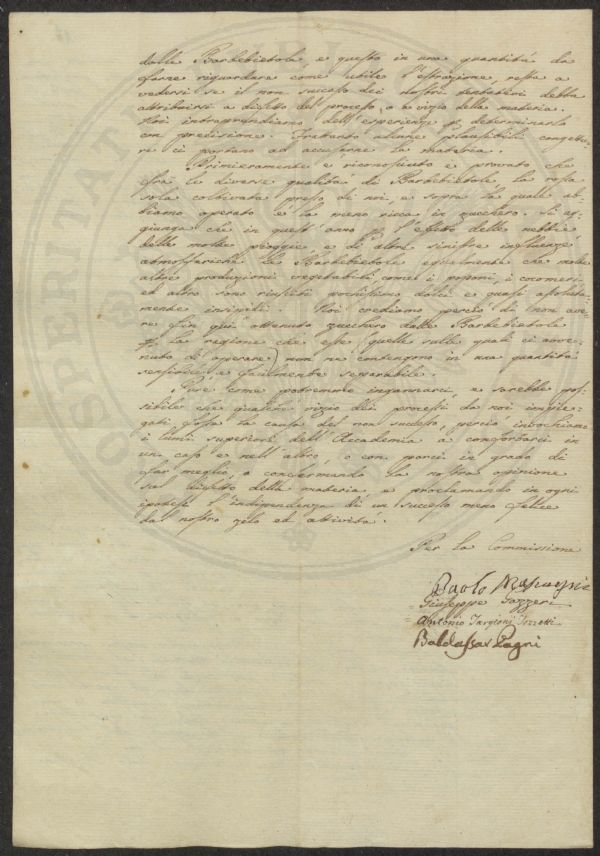 dalle Barbebietole, e questo in una quantità da
farne riguardare come utile l'estrazione, resta a
vedersi se il non successo dei nostri tentativi debba
attribuirsi a difetto del processo, o a vizio della materia.
Noi intraprendiamo dell'esperienze p. determinarlo
con precisione. Frattanto alcune plausibili congettu-
re ci portano ad accusarne la materia.
Primieramente è riconosciuto e provato che
frà le diverse qualità di Barbebietole la rossa
sola coltivata presso di noi, e sopra la quale ab-
biamo operato è la meno ricca in zucchero. Si ag-
giunga che in quest'anno p. l'effetto delle nebbie
delle molte pioggie, e di altre sinistre influenze
atmosferiche le Barbebietole egualmente che molte
altre produzioni vegetabili come i poponi, i cocomeri
ed altro sono riusciti pochissimo dolci e quasi assoluta-
mente insipidi. Noi crediamo perciò di non ave-
re fin qui ottenuto zucchero dalle Barbebietole
p. la ragione che esse (quelle sulle quali ci avve-
nuto di operare) non ne contengono in una quantità
sensibile e facilmente separabile.
Pure come potremmo ingannarci, e sarebbe pos-
sibile che qualche vizio dei processi da noi impie-
gati fosse la causa del non successo, perciò invochiamo
i lumi superiori dell'Accademia a confortarci in
un caso e nell'altro, o con porci in grado di
far meglio, o confermando la nostra opinione
sul difetto della materia, e proclamando in ogni
ipotesi l'indipendenza di un successo meno felice
dal nostro zelo ed attività.
Per la Commissione
Paolo Mascagni
Giuseppe Gazzeri
Antonio Targioni Tozzetti
Baldassar Pagni